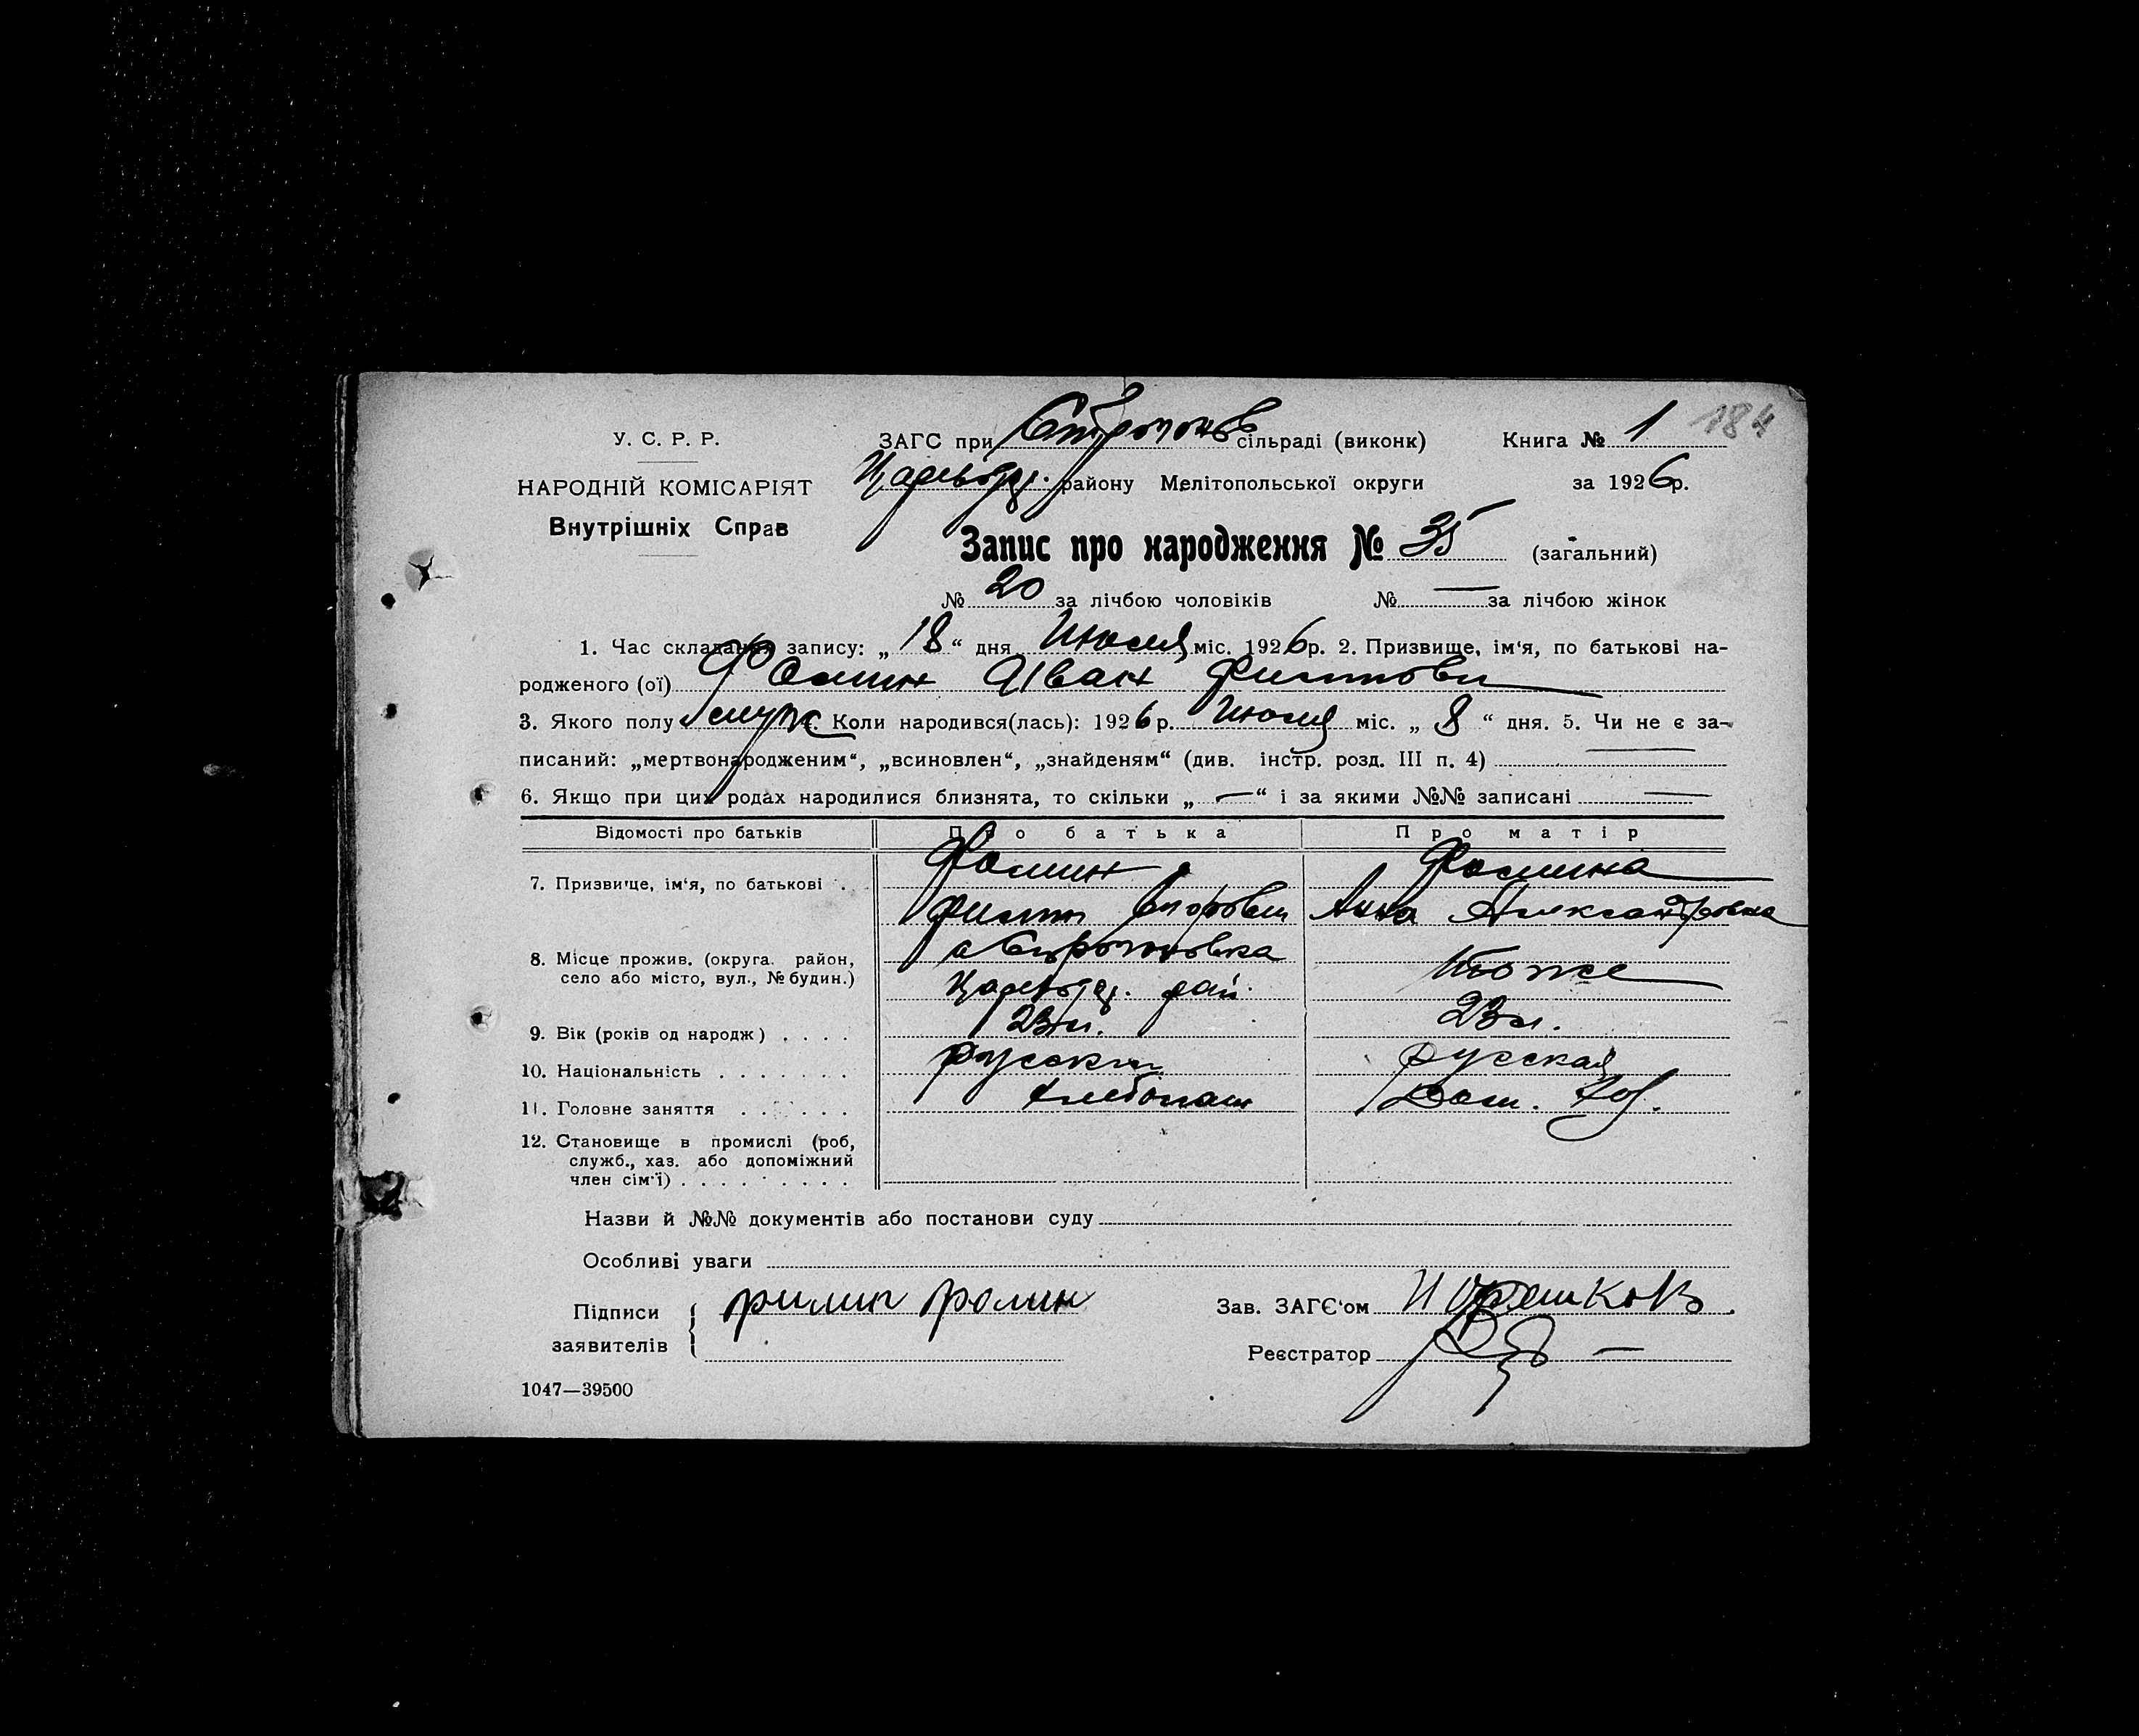 184
У. С. Р. Р.
НАРОДНІЙ КОМІСАРІЯТ
Внутрішніх Справ
ЗАГС при Сирогонов сільраді (виконк) Книга № 1
району Мелітопольської округи за 1926 р.
Запис про народження № 35 (загальний)
№ 20 за лічбою чоловіків № — за лічбою жінок
1. Час складання запису: „ 18 “ дня Июля міс. 1926 р. 2. Призвище, ім'я, по батькові на-
родженого (ої) Фомин Иван
3. Якого полу муж 4. Коли народився(лась): 1926 р. Июля міс. „ 8 “ дня. 5. Чи не є за-
писаний: „мертвонародженим“, „всиновлен“, „знайденям“ (див. інстр. розд. III п. 4) —
6. Якщо при цих родах народилися близнята, то скільки „ — “ і за якими №№ записані —
Відомості про батьків Про батька Про матір
7. Призвище, ім'я, по батькові . Фомин Фомина
Филип Анна Александровна
8. Місце прожив. (округа. район,
село або місто, вул., № будин.)
рай. тоже
9. Вік (років од народж) . . . . 23 л. 23 л.
10. Національність . . . . . . . русский русская
11. Головне заняття . . . . . . хлебопаш Дом. хоз.
12. Становище в промислі (роб,
служб., хаз. або допоміжний
член сім'ї) . . . . . . . . .
Назви й №№ документів або постанови суду
Особливі уваги
Підписи
заявителів
Филип Фомин
Зав. ЗАГЄ'ом
Реєстратор
1047—39500